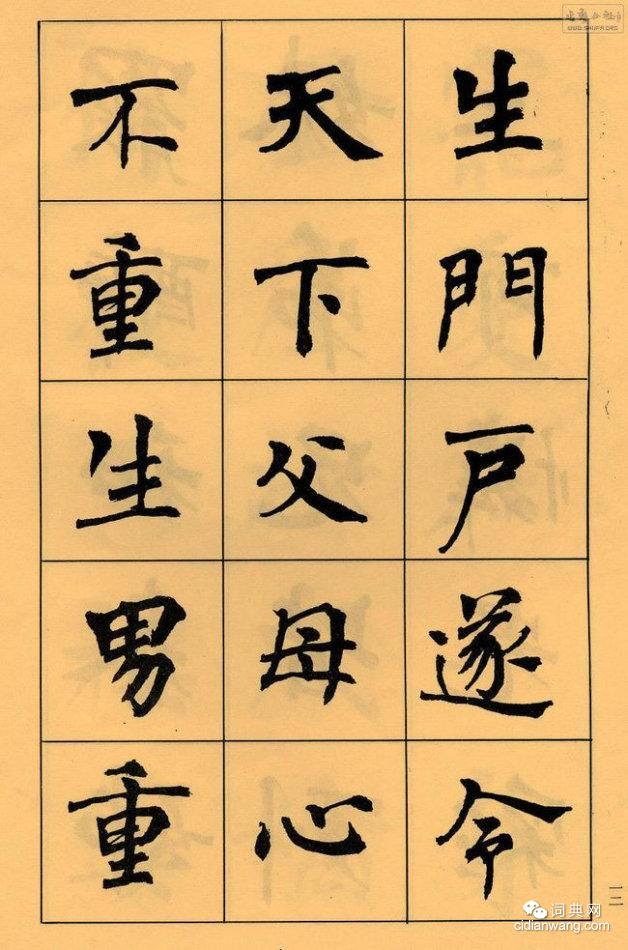 生門戶遂令
天下父母心
不重生男重
一二
词典网
cidianwang.com
WWW.SHUFA.ORG